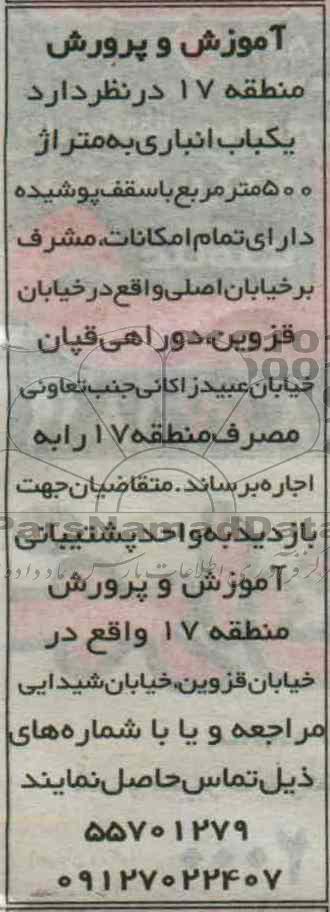 آموزش و پرورش
منطقه ۱۷ درنظردارد
یکباب انباری به‌متراژ
۵۰۰مترمربع باسقف‌پوشیده
دارای‌تمام‌امکانات،مشرف
برخیابان‌اصلی‌واقع‌درخیابان
قزوین،دوراهی‌قپان
خیابان‌عبیدزاکانی‌جنب‌تعاونی
مصرف‌منطقه۱۷رابه
اجاره‌برساند.متقاضیان‌جهت
بازدیدبه‌واحدپشتیبانی
آموزش و پرورش
منطقه ۱۷ واقع در
خیابان‌قزوین،خیابان‌شیدایی
مراجعه و یا با شماره‌های
ذیل‌تماس‌حاصل‌نمایند
۵۵۷۰۱۲۷۹
۰۹۱۲۷۰۲۲۴۰۷
ParsNamadData